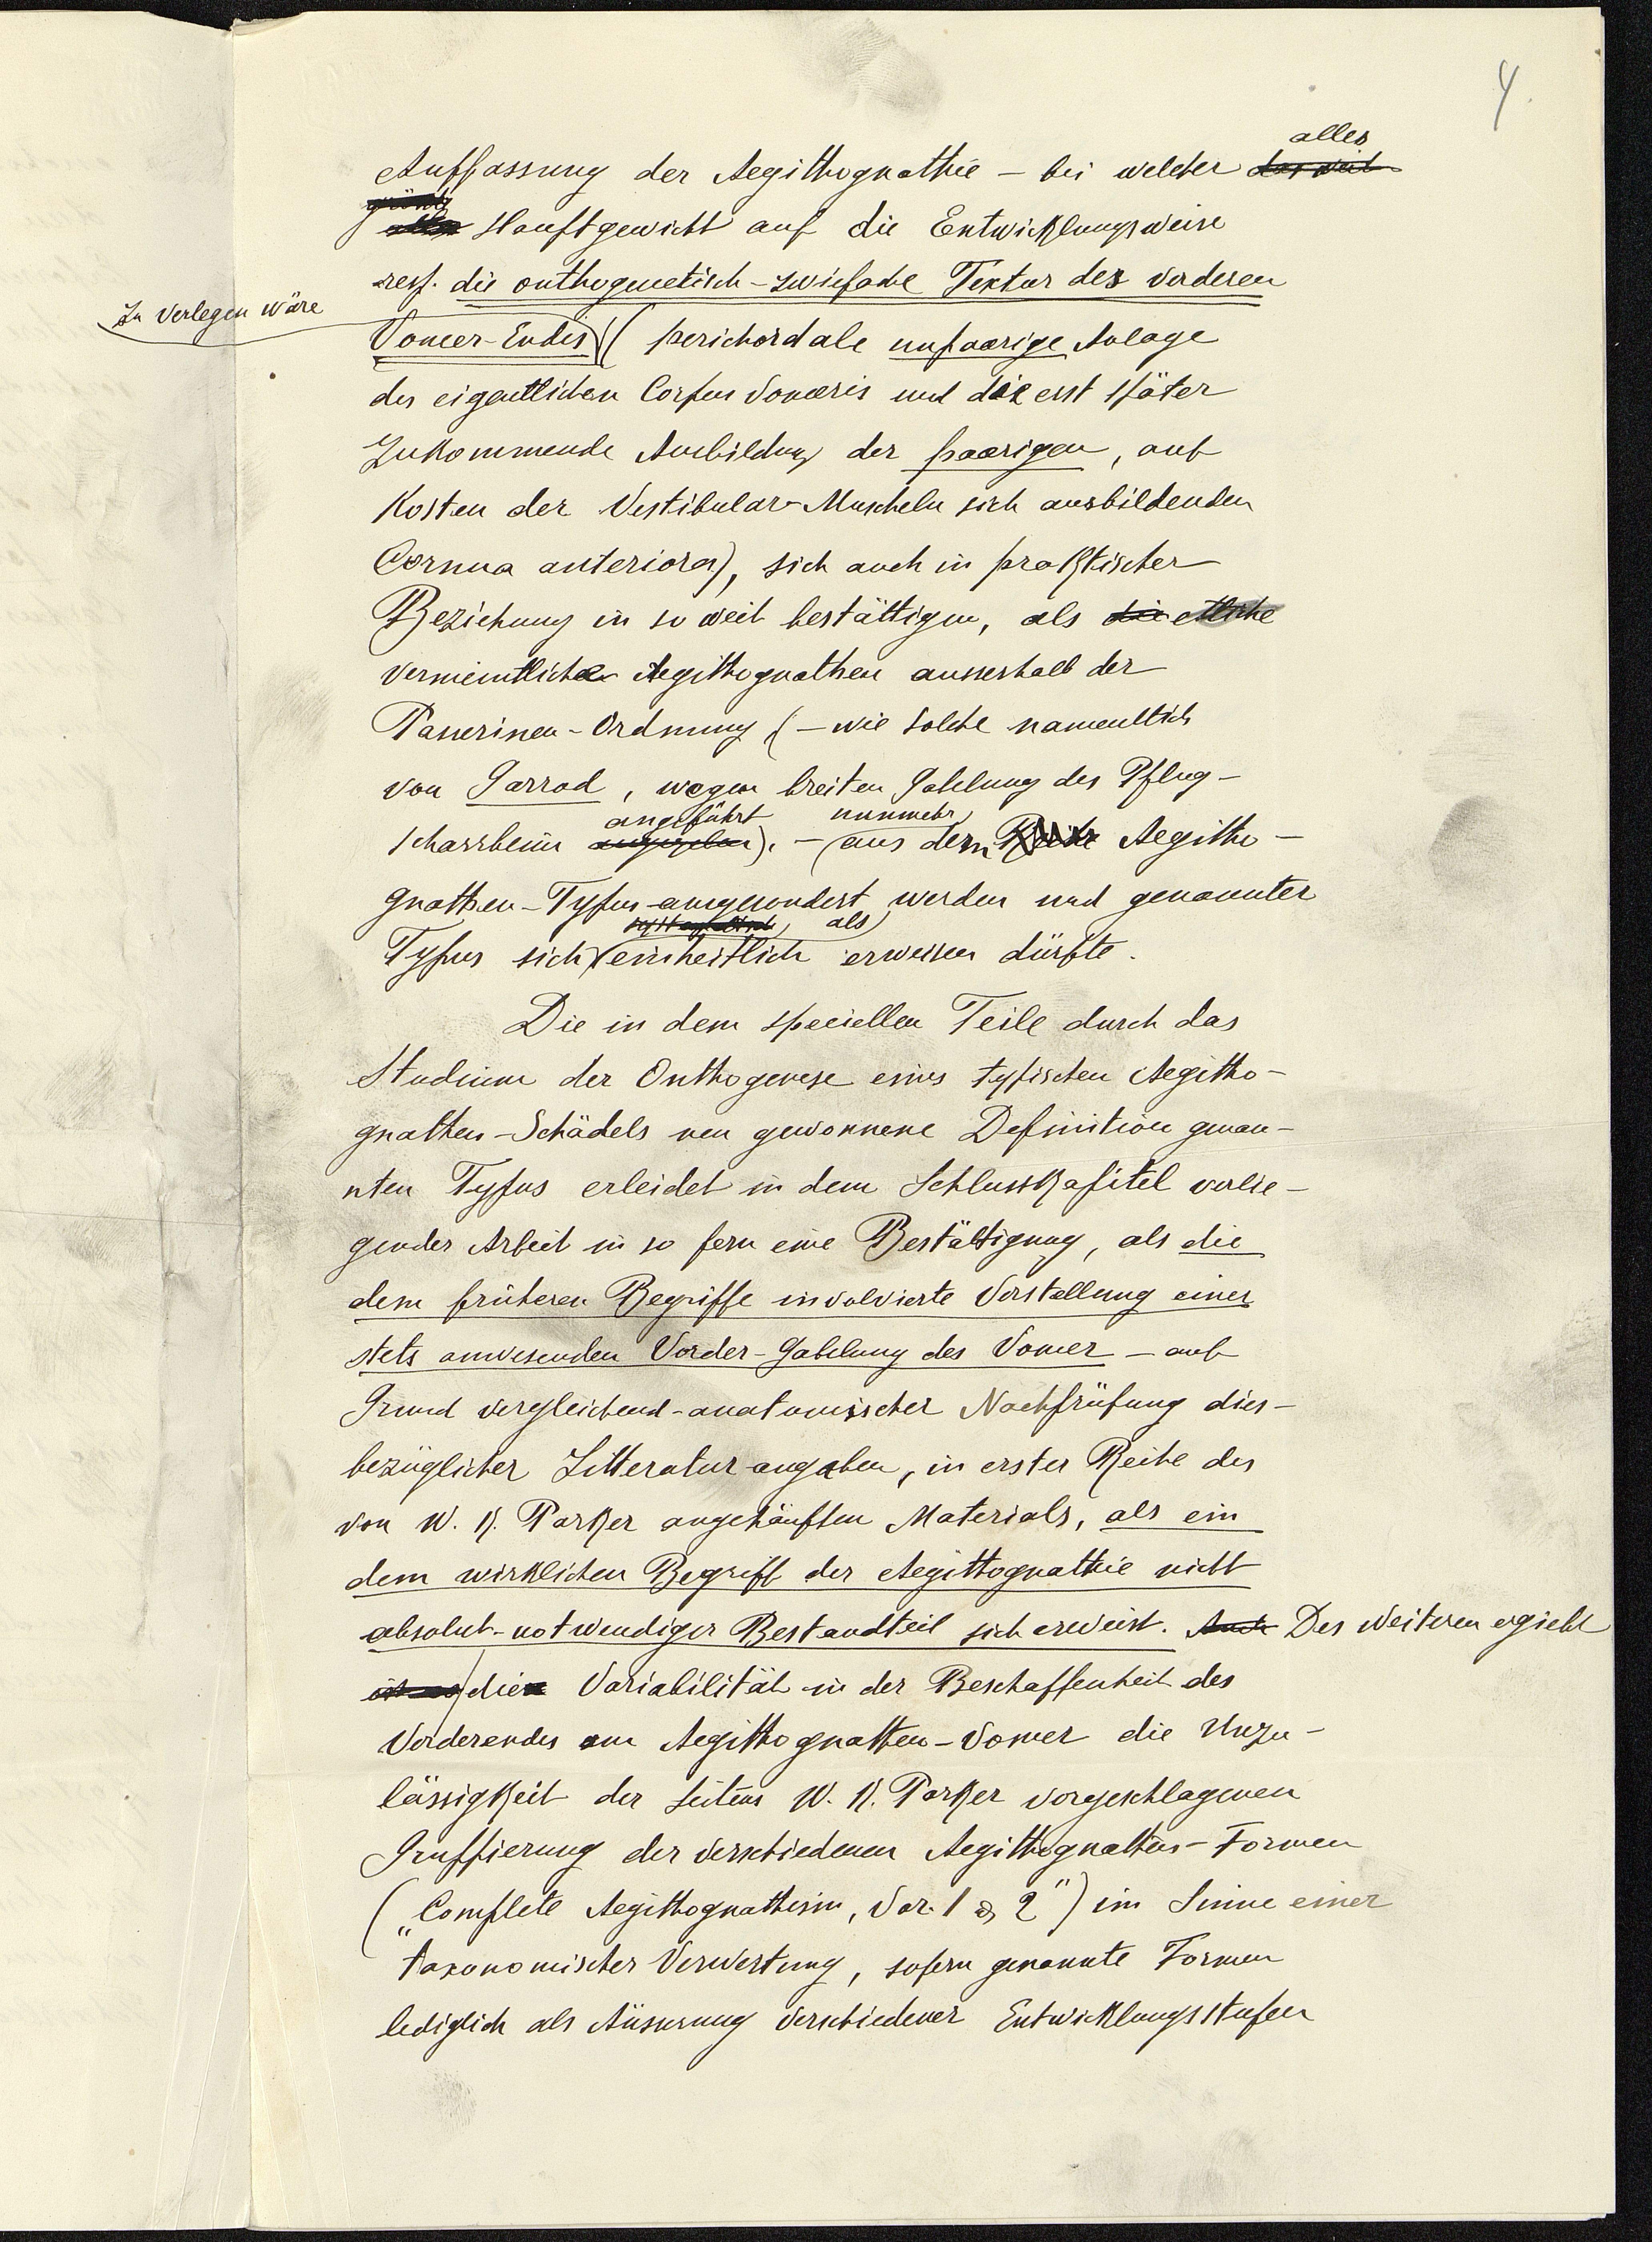 4.
alles
Auffassung der Aegithognathie – bei welcher das weit
Hauptgewicht auf die Entwicklungsweise
resp. die onthogenetisch-zwiefache Textur des vorderen
zu verlegen wäre
Vomer-Endes (perichordale unpaarige Anlage
des eigentlichen Corpus Vomeris und die erst später
zukommende Ausbildung der paarigen, auf
Kosten der Vestibular-Muscheln sich ausbildenden
Cornua anteriora), sich auch in praktischer
Beziehung in so weit bestättigen, als die etliche
vermeintliche Aegithognathen ausserhalb der
Passerinen-Ordnung (– wie solche namentlich
von Garrod, wegen breiten Gabelung des Pflug-
angeführt nunmehr
scharrbeins angegeben). – aus dem Reihe Aegitho-
gnathen-Typus ausgesondert werden und genannter
als
Typus sich einheitlich erweisen dürfte.
Die in dem speciellen Teile durch das
Studium der Onthogenese eines typischen Aegitho-
gnathen-Schädels neu gewonnene Definition genan-
nten Typus erleidet in dem Schlusskapitel vorlie-
gender Arbeit in so fern eine Bestättigung, als die
dem früheren Begriffe involvierte Vorstellung einer
stets anwesenden Vorder-Gabelung des Vomer – auf
Grund vergleichend-anatomischer Nachprüfung dies-
bezüglicher Litteratur-angaben, in erster Reihe des
von W. K. Parker angehäuften Materials, als ein
dem wirklichen Begriff der Aegithognathie nicht
absolut-notwendiger Bestandteil sich erweist. Auch Des Weiteren ergiebt
ist es die Variabilität in der Beschaffenheit des
Vorderendes am Aegithognathen-Vomer die Unzu-
lässigkeit der seitens W. K. Parker vorgeschlagenen
Gruppierung der verschiedenen Aegithognathen-Formen
(„Complete Aegithognathism, Var. 1 & 2") im Sinne einer
taxonomischer Verwertung, sofern genannte Formen
lediglich als Äusserung verschiedener Entwicklungsstufen